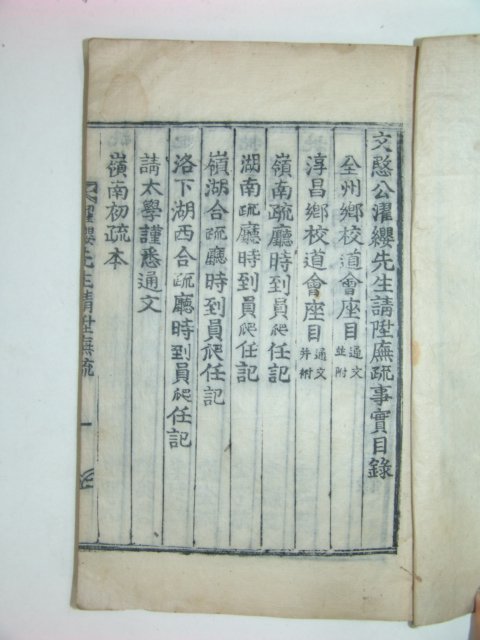 文愍公濯纓先生請陞廡疏事實目錄
全州鄉校道會座目通文並附
淳昌鄉校道會座目通文并附
嶺南疏廳時到員爬任記
湖南疏廳時到員爬任記
嶺湖合疏廳時到員爬任記
洛下湖西合疏廳時到員爬任記
請太學謹悉通文
嶺南初疏本
濯纓先生請陞廡疏
一